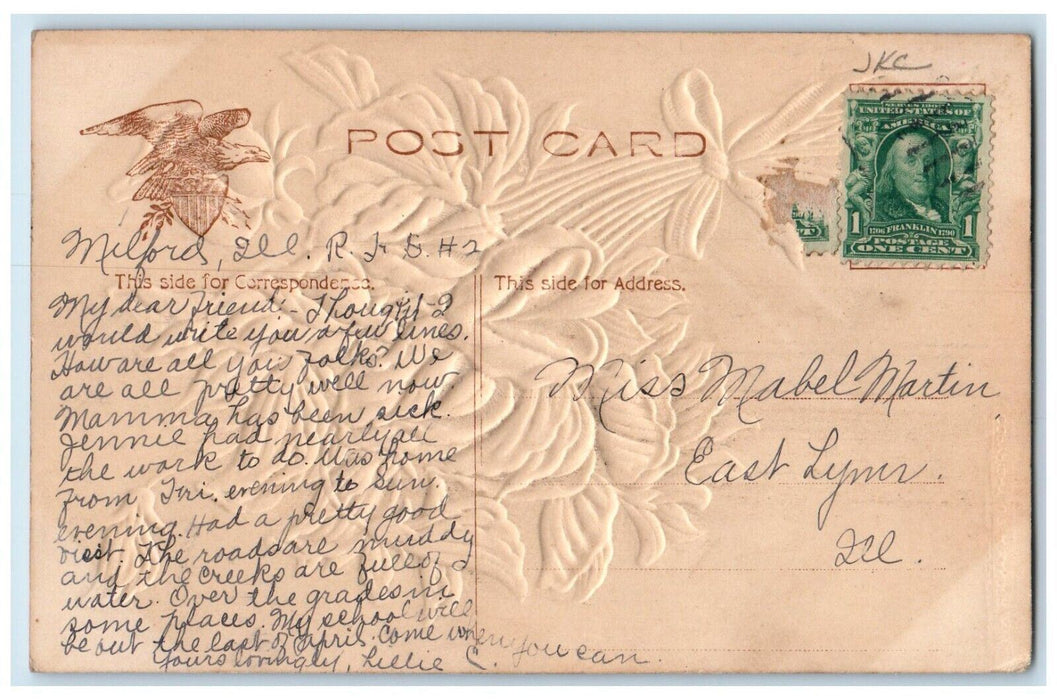 JKC
POST CARD
SERIES 1902
UNITED STATES OF
AMERICA
1 1706 FRANKLIN 1790 1
POSTAGE
ONE CENT
Milford, Ill. R. F. D. #2
This side for Correspondence.
This side for Address.
My dear friend:- Thought I
would write you a few lines.
How are all you folks? We
are all pretty well now.
Mamma has been sick.
Jennie had nearly all
the work to do. Was home
from Fri. evening to Sun.
evening. Had a pretty good
visit. The roads are muddy
and the creeks are full of
water. Over the grades in
some places. My school will
be out the last of April. Come when you can.
Yours lovingly, Lillie C.
Miss Mabel Martin
East Lynn.
Ill.